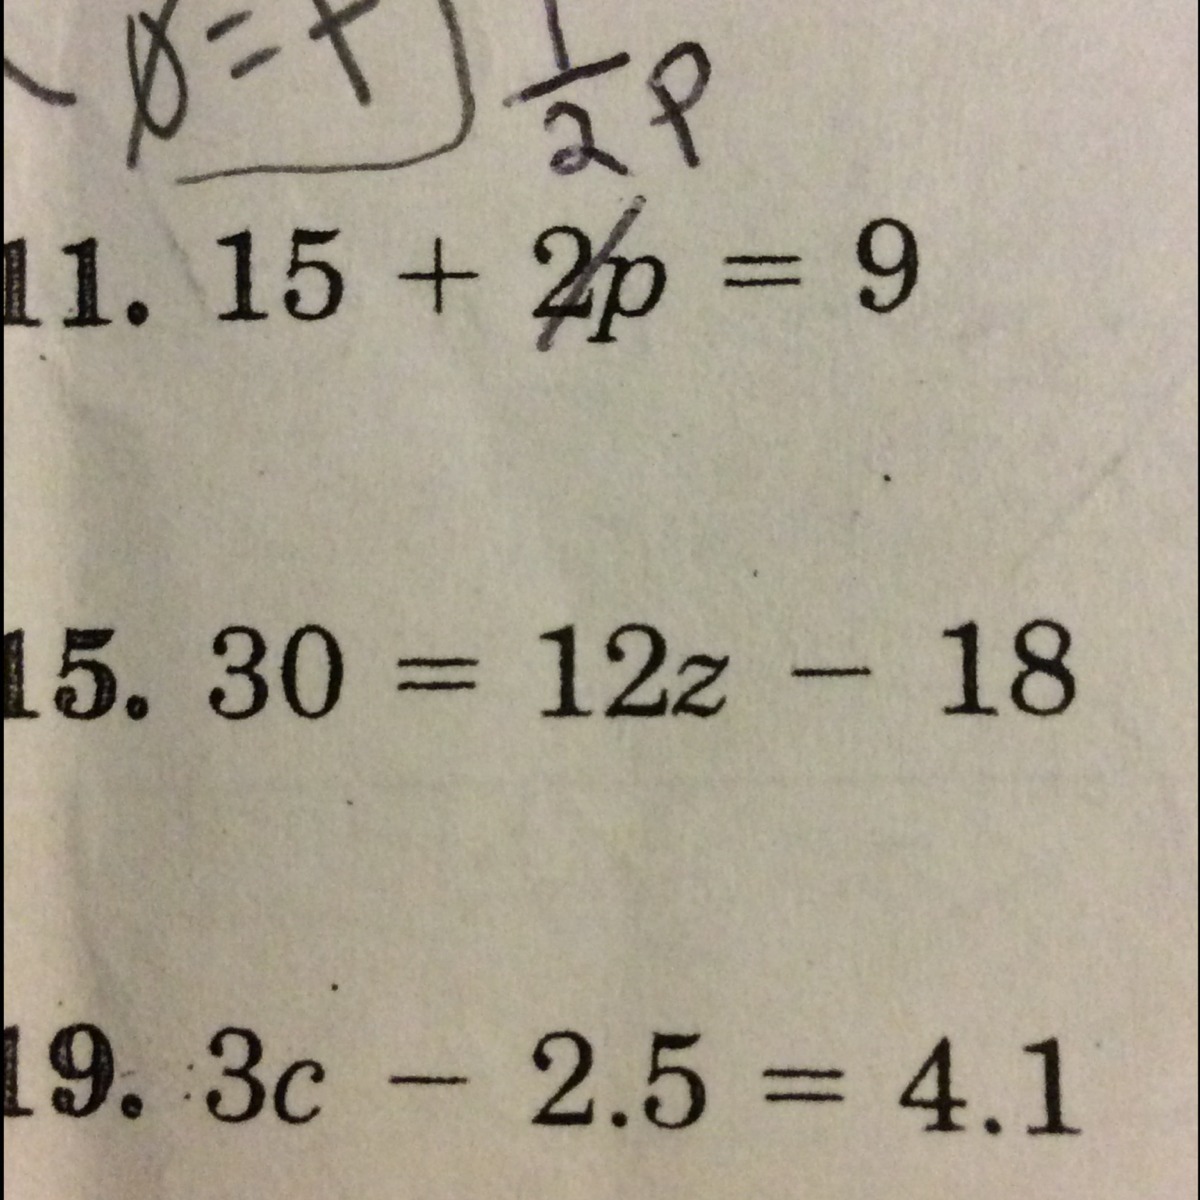 1/2 p
11. 15 + 2p = 9
15. 30 = 12z − 18
19. 3c − 2.5 = 4.1